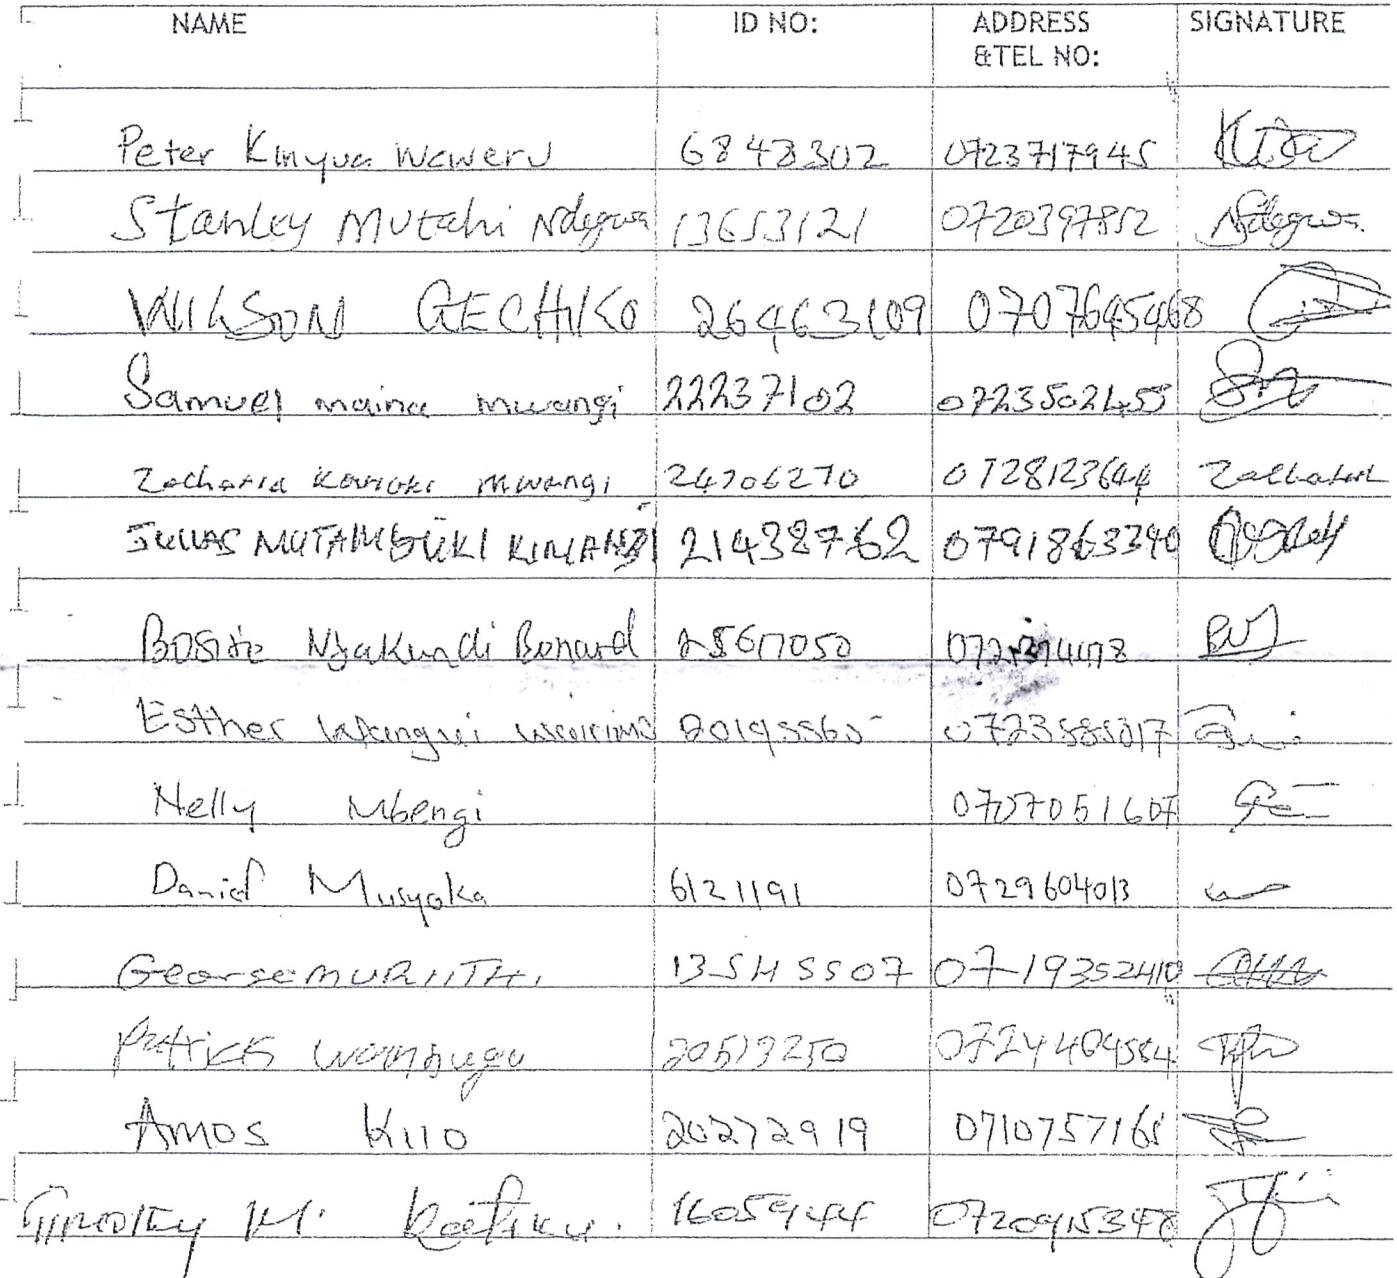 NAME ID NO: ADDRESS SIGNATURE
&TEL NO:
Peter Kinyua Waweru 6848302 0723717945
Stanley Mutahi Ndegwa 13653121 0720397852 Ndegwa
WILSON GECHIKO 26463109 0707645468
Samuel maina mwangi 22237102 0723502455
Zacharia Kariuki Mwangi 24706270 0728123644
JULIUS MUTAMBUKI KIMANZI 21438762 0791863340
Bosire Nyakundi Bonard 25617050
Esther Wangui Wairimu
Nelly Mbengi 0707051607
Daniel Musyoka 6121191 0729604013
George MURIITHI 13545507 0719352410
Patrick Wambugu 20513250
AMOS KIIO 20272919 0710757165
Timothy M. 16059444 0720915348